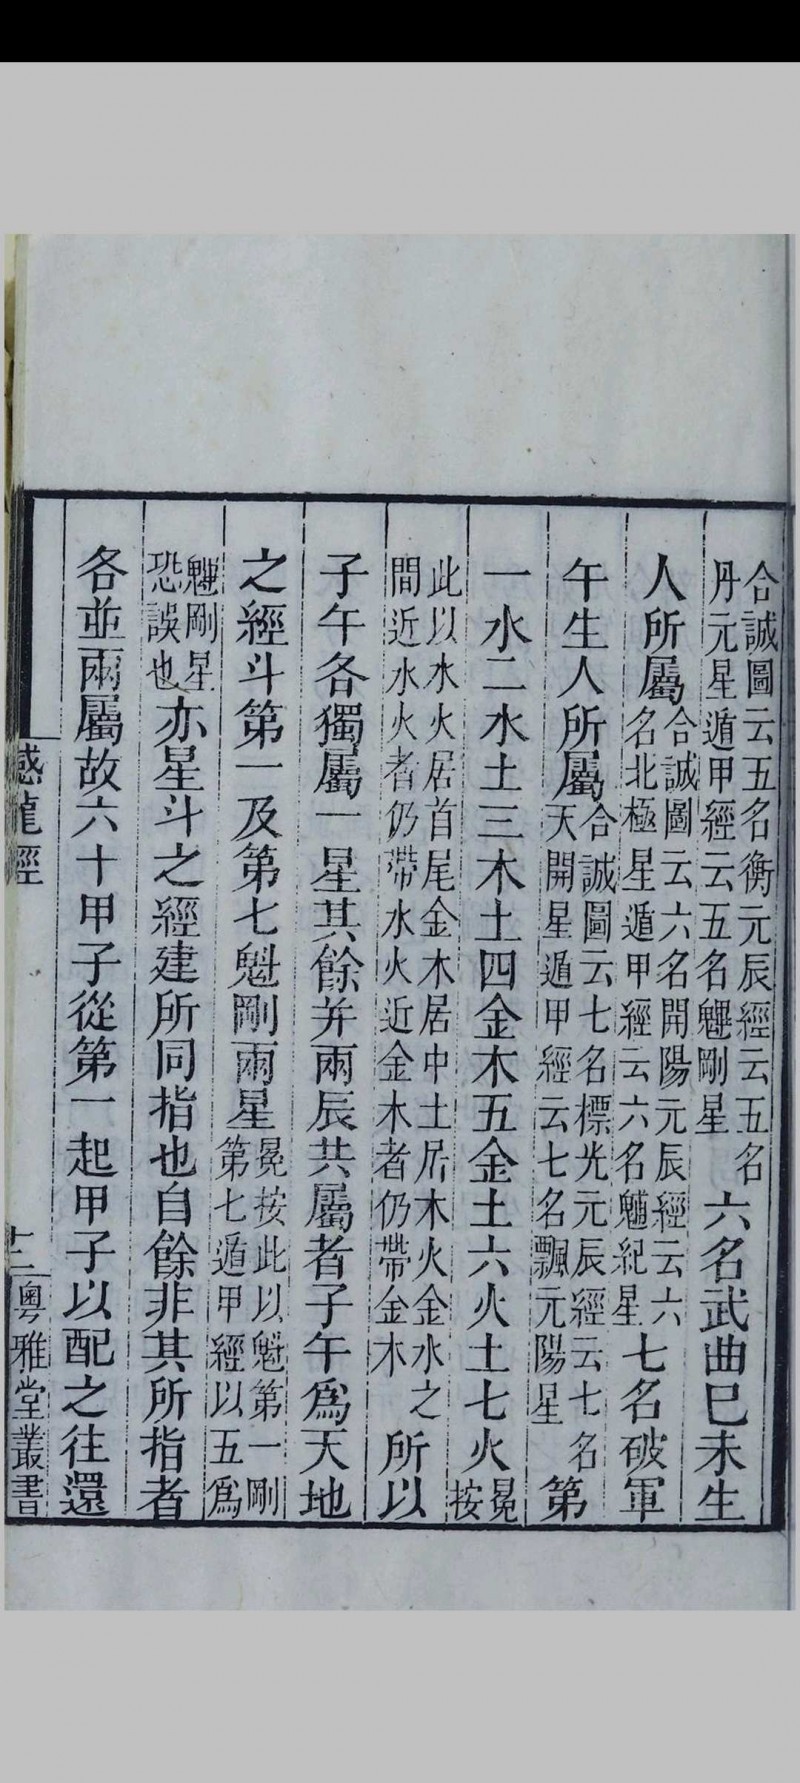 合誠圖云五名衡元辰經云五名丹元星遁甲經云五名魓剛星六名武曲巳未生
人所屬合誠圖云六名開陽元辰經云六名北極星遁甲經云六名魒紀星七名破軍
午生人所屬合誠圖云七名標光元辰經云七名天開星遁甲經云七名飄元陽星第
一水二水土三木土四金木五金土六火土七火冕按
此以水火居首尾金木居中土居木火金水之間近水火者仍帶水火近金木者仍帶金木所以
子午各獨屬一星其餘并兩辰共屬者子午爲天地
之經斗第一及第七魁剛兩星冕按此以魁第一剛第七遁甲經以五爲
魓剛星恐誤也亦星斗之經建所同指也自餘非其所指者
各並兩屬故六十甲子從第一起甲子以配之往還
龍經
粵雅堂叢書